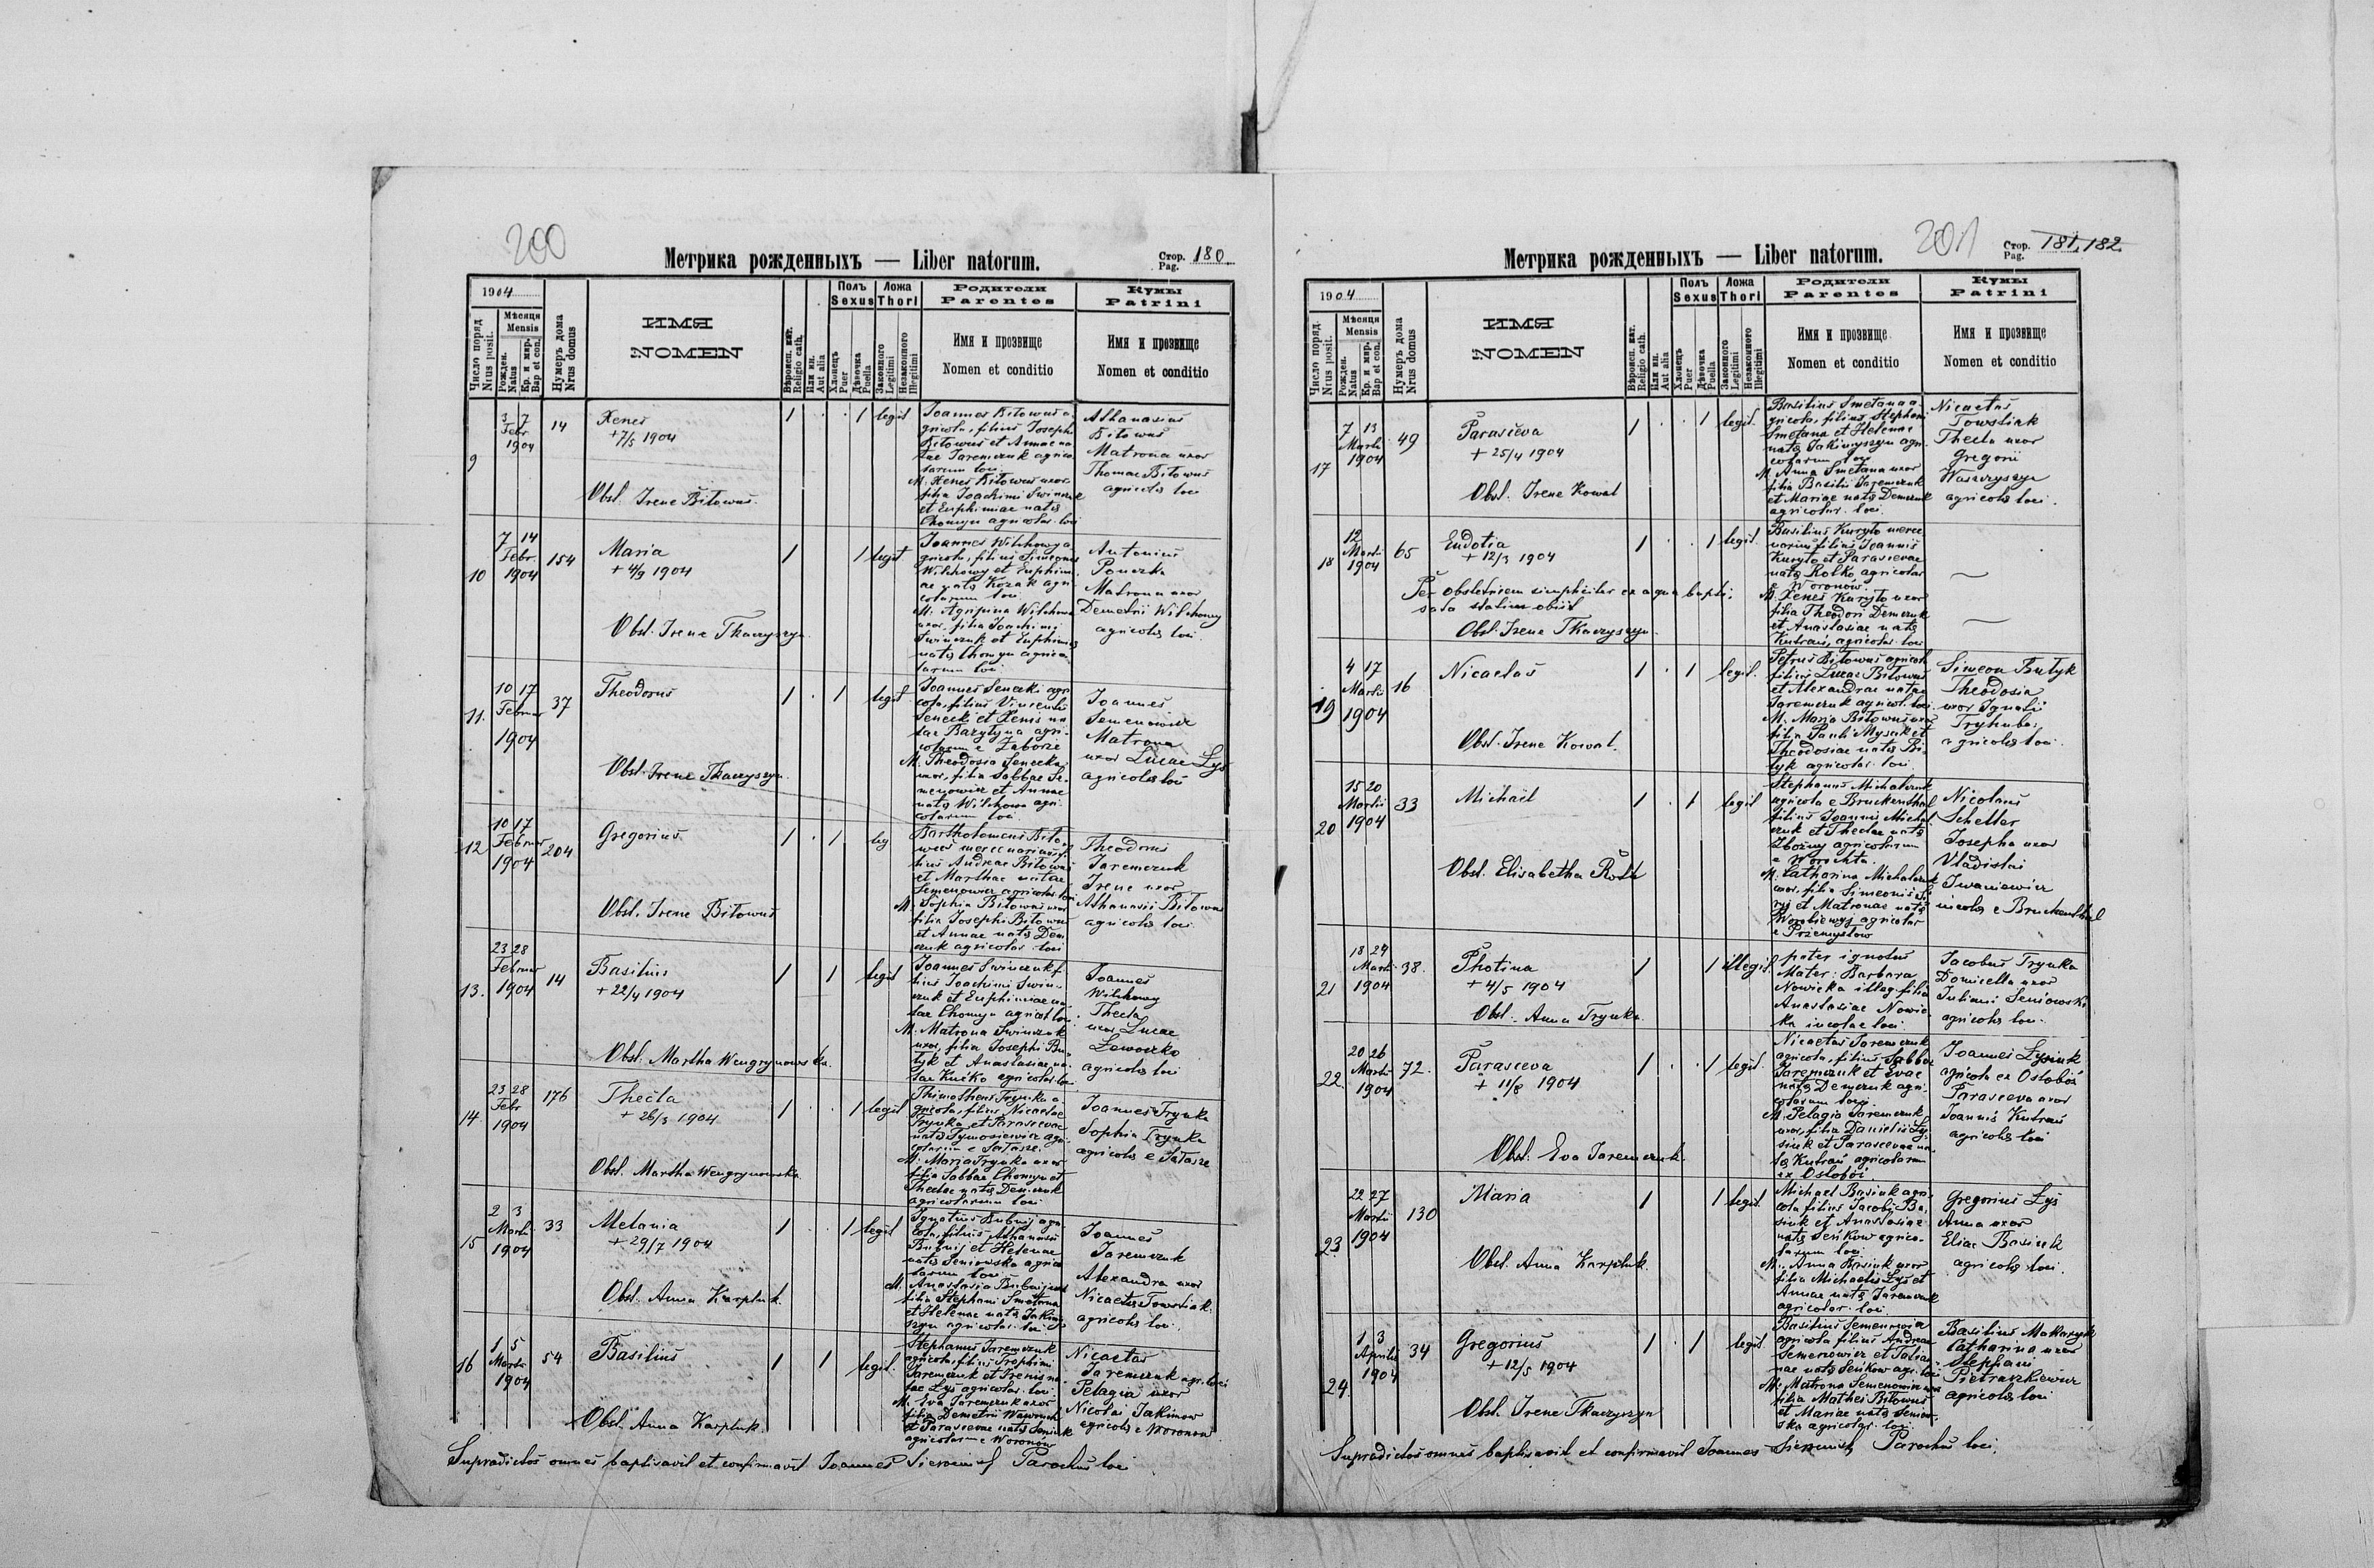 200
Метрика рожденныхъ — Liber natorum.
Стор. Pag. 180
1904
Число поряд. Nrus posit.
Мѣсяця Mensis
Рожден. Natus
Кр. и мир. Bap et con.
Нумеръ дома Nrus domus
ИМЯ
NOMEN
Вѣроисп. кат. Religio cath.
Или ин. Aut alia
Полъ Sexus
Хлопецъ Puer
Дѣвочка Puella
Ложа Thori
Законного Legitimi
Незаконного Illegitimi
Родители
Parentes
Имя и прозвище
Nomen et conditio
Кумы
Patrini
Имя и прозвище
Nomen et conditio
9
3 7
Febr
1904
14
Xenes
+ 7/5 1904
Obst. Irene Bitowus
1 1 legit
Joannes Bitowus a-
gricola, filius Josephi
Bitowus et Annae na
tae Jaremczuk agrico
larum loci
M. Xenes Bitowus uxor
filia Joachimi Swinczuk
et Euphimiae natę
Chomyn agricolar. loci
Athanasius
Bitowus
Matrona uxor
Thomae Bitowus
agricolę loci
10
7 14
Febr.
1904
154
Maria
+ 4/9 1904
Obst. Irene Tkaczyszyn
1 1 legit
Joannes Wilchowy a
gricola, filius Simeonis
Wilchowy et Euphimi
ae natę Kozak agri
colarum loci
M. Agripina Wilchowa
uxor, filia Joachimi
Swinczuk et Euphimię
natę Chomyn agrico
larum loci
Antonius
Ponczka
Matrona uxor
Demetrii Wilchowy
agricolę loci
11.
10 17
Februar
1904
37
Theodorus
Obst. Irene Tkaczyszyn
1 1 legit
Joannes Senecki agri
cola, filius Vincentii
Senecki et Xenis na
tae Bazylyna agri-
colarum e Zaborze
M. Theodosia Senecka
uxor, filia Sabbae Se-
menowicz et Annae
natę Wilchowa agri-
colarum loci
Joannes
Semenowicz
Matrona
uxor Lucae Lys
agricolę loci
12
10 17
Februar
1904
204
Gregorius
Obst. Irene Bitowus
1 1 leg
Bartholomeus Bito
wus mercenarius fi
lius Andreae Bitowus
et Marthae natae
Semenowicz agricolar. loci
M. Sophia Bitowus uxor
filia Josephi Bitowus
et Annae natę Dem
czuk agricolar. loci
Theodorus
Jaremczuk
Irene uxor
Athanasii Bitowus
agricolę loci
13.
23 28
Februar
1904
14
Basilius
+ 22/4 1904
Obst. Martha Wengrynowska
1 1 legit
Joannes Swinczuk fi-
lius Joachimi Swin-
czuk et Euphimiae na-
tae Chomyn agricol. loci
M. Matrona Swinczuk
uxor, filia Josephi Bu-
tyk et Anastasiae na-
tae Kućko agricolar. loci
Joannes
Wilchowy
Thecla
uxor Lucae
Lewoczko
agricolę loci
14
23 28
Febr
1904
176
Thecla
+ 26/3 1904
Obst. Martha Wengrynowska
1 1 legit
Thimotheus Trynka a
gricola, filius Nicaetae
Trynka et Parascevae
natę Tymosiewicz agri-
colarum e Sałasze
M. Maria Trynka uxor
filia Sabbae Chomyn et
Theclae natę Demczuk
agricolarum loci
Joannes Trynka
Sophia Trynka
agricolę e Sałasze
15
2 3
Martii
1904
33
Melania
+ 29/7 1904
Obst. Anna Karpluk
1 1 legit
Ignatius Bubnij agri
cola, filius Athanasii
Bubnij et Helenae
natę Seniowska agrico
larum loci
M. Anastasia Bubnij uxor
filia Stephani Smetana
et Helenae natę Jakimy
szyn agricolar. loci
Joannes
Jaremczuk
Alexandra uxor
Nicaetę Towstiak
agricolę loci
16
1 5
Martii
1904
54
Basilius
Obst. Anna Karpluk
1 1 legit
Stephanus Jaremczuk
agricola, filius Trophimi
Jaremczuk et Irenis na-
tae Lys agricolar. loci
M. Eva Jaremczuk uxor
filia Demetrii
et Parascevae natę
agricolarum e Woronow
Nicaetas
Jaremczuk agr. loci
Pelagia uxor
Nicolai Jakimow
agricolę e Woronow
Supradictos omnes baptisavit et confirmavit Joannes Parochus loci
201
Метрика рожденныхъ — Liber natorum.
Стор. Pag. 181, 182
1904
Число поряд. Nrus posit.
Мѣсяця Mensis
Рожден. Natus
Кр. и мир. Bap et con.
Нумеръ дома Nrus domus
ИМЯ
NOMEN
Вѣроисп. кат. Religio cath.
Или ин. Aut alia
Полъ Sexus
Хлопецъ Puer
Дѣвочка Puella
Ложа Thori
Законного Legitimi
Незаконного Illegitimi
Родители
Parentes
Имя и прозвище
Nomen et conditio
Кумы
Patrini
Имя и прозвище
Nomen et conditio
17
7 13
Martii
1904
49
Parasceva
+ 25/4 1904
Obst. Irene Kowal
1 1 legit.
Basilius Smetana a-
gricola, filius Stephani
Smetana et Helenae
natę Jakimyszyn agri-
colarum loci
M. Anna Smetana uxor
filia Basilii Jaremczuk
et Mariae natę Demczuk
agricolar. loci
Nicaetas
Towstiak
Thecla uxor
Gregorii
Waszczyszyn
agricolę loci.
18
12
Martii
1904
65
Eudotia
+ 12/3 1904
Per obstetricem simpliciter ex aqua bapti-
sata statim obiit
Obst. Irene Tkaczyszyn
1 1 legit.
Basilius Kuryło merce
narius filius Joannis
Kuryło et Parascevae
natę Kolko agricolar
e Woronow
M. Xenes Kuryło uxor
filia Theodori Demczuk
et Anastasiae natę
Kutrań, agricolar. loci
19
4 17
Martii
1904
16
Nicaetas
Obst. Irene Kowal.
1 1 legit.
Petrus Bitowus agricola
filius Lucae Bitowus
et Alexandrae natae
Jaremczuk agricol. loci
M. Maria Bitowus uxor
filia Pauli Mysak et
Theodosiae natę Bu-
tyk agricolar. loci
Simeon Butyk
Theodosia
uxor Ignatii
Tryhuba,
agricolę loci
20
15 20
Martii
1904
33
Michaël
Obst. Elisabetha Roth
1 1 legit
Stephanus Michalczuk
agricola e Bruckenthal
filius Joannis Michal
czuk et Theclae natę
Zbożny agricolarum
e Worochta.
M. Catharina Michalczuk
uxor, filia Simeonis
et Matronae natę
Worobiewyj agricolar
e Przemysłow
Nicolaus
Scheller
Josepha uxor
Vladislai
Iwaniewicz
incolę e Bruckenthal
21
18 24
Martii
1904
38.
Photina
+ 4/5 1904
Obst. Anna Trynka
1 1 illegit.
pater ignotus
Mater: Barbara
Nowicka illeg. filia
Anastasiae Nowic
ka incolae loci
Jacobus Trynka
Domicella uxor
Juliani Seniowski
agricolę loci.
22
20 26
Martii
1904
72.
Parasceva
+ 11/8 1904
Obst. Eva Jaremczuk
1 1 legit.
Nicaetas Jaremczuk
agricola, filius Sabbae
Jaremczuk et Evae
natę Demczuk agri-
colarum loci
M. Pelagia Jaremczuk
uxor, filia Danielis Ły-
siuk et Parascevae na-
tę Kutrań agricolarum
ex Ostobóż
Joannes Łysiuk
agricola ex Ostobóż
Parasceva uxor
Joannis Kutrań
agricolę loci
23
22 27
Martii
1904
130
Maria
Obst. Anna Karpluk
1 1 legit.
Michael Basiuk agri
cola filius Jacobi Ba
siuk et Anastasiae
natę Seńkow agrico-
larum loci
M. Anna Basiuk uxor
filia Michaelis Lyś et
Annae natę Jaremczuk
agricolar. loci
Gregorius Lyś
Anna uxor
Eliae Basiuk
agricolę loci.
24.
1 3
Aprilis
1904
34
Gregorius
+ 12/5 1904
Obst. Irene Tkaczyszyn
1 1 legit
Basilius Semenowicz
agricola filius Andreae
Semenowicz et Tatia-
nae natę Seńkow agr. loci
M. Matrona Semenowicz uxor
filia Mathei Bitowus
et Mariae natę Seniow-
ska agricolar. loci
Basilius Makaryk
Catharina uxor
Stephani
Pietraszkiewicz
agricolę loci
Supradictos omnes baptisavit et confirmavit Joannes Parochus loci.